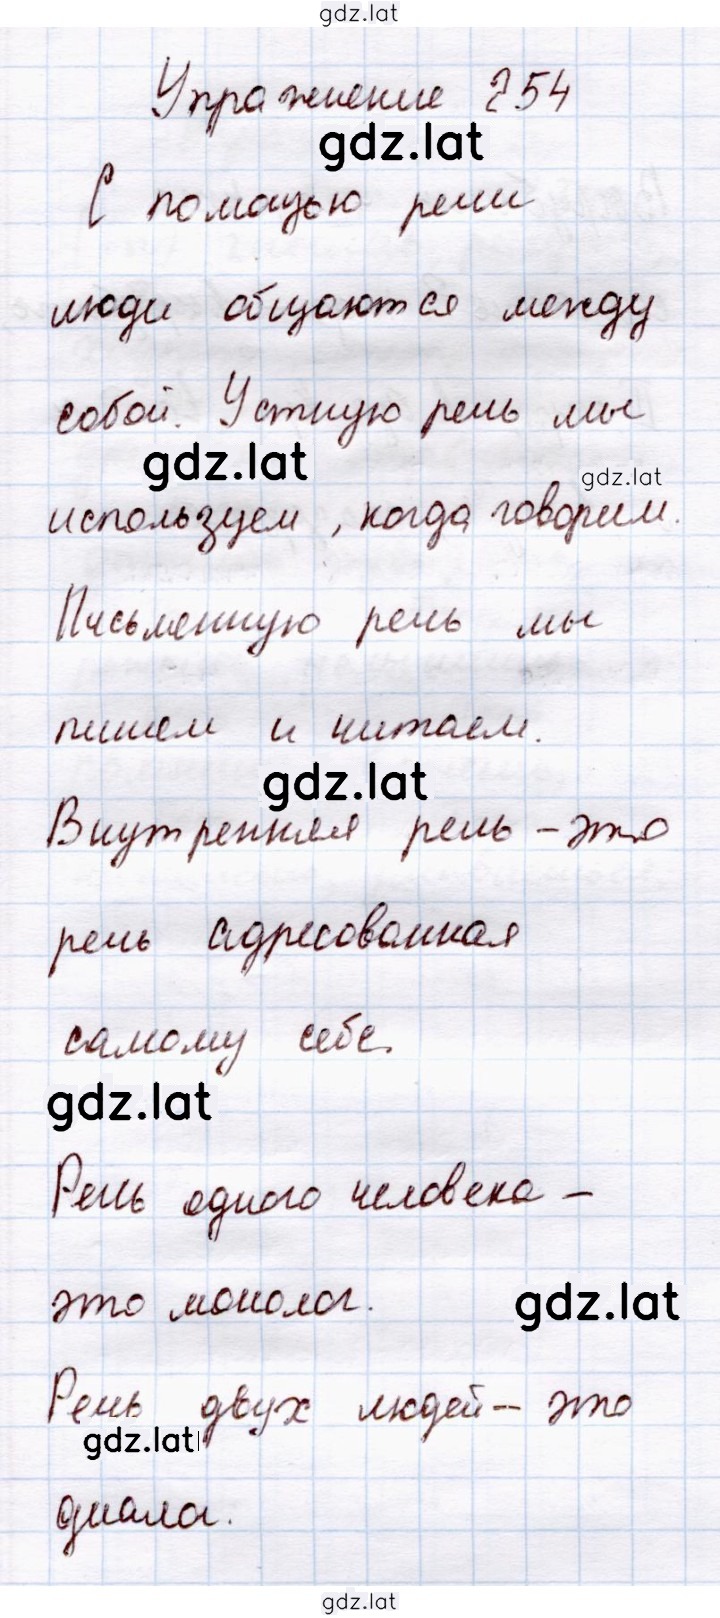 gdz.lat
Упражнение 254
gdz.lat
С помощью речи
люди общаются между
собой. Устную речь мы
gdz.lat
gdz.lat
используем, когда говорим.
Письменную речь мы
пишем и читаем.
gdz.lat
Внутренняя речь – это
речь адресованная
самому себе.
gdz.lat
Речь одного человека –
это монолог.
gdz.lat
Речь двух людей – это
gdz.lat
диалог.
gdz.lat